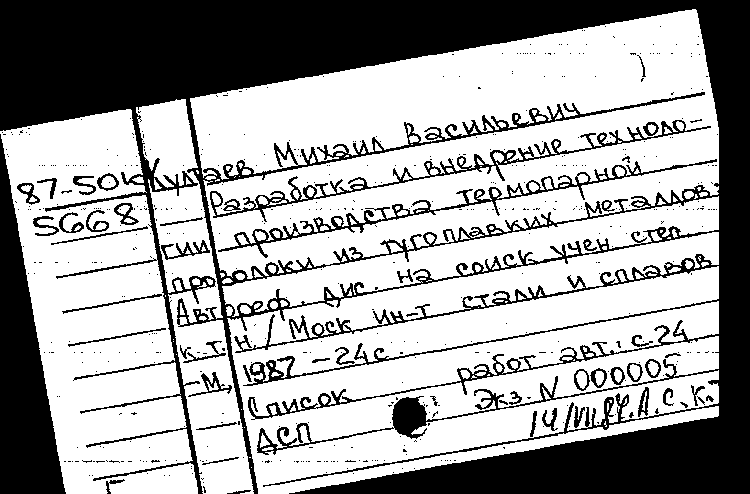 87-50к Култаев, Михаил Васильевич
5668 Разработка и внедрение техноло-
гии производства термопарной
проволоки из тугоплавких металлов:
Автореф. дис. на соиск учен степ.
к.т.н. / Моск ин-т стали и сплавов
-М., 1987 - 24с.
Список работ авт.: с.24
ДСП Экз. N 000005
14/VII.87. А.С.К.